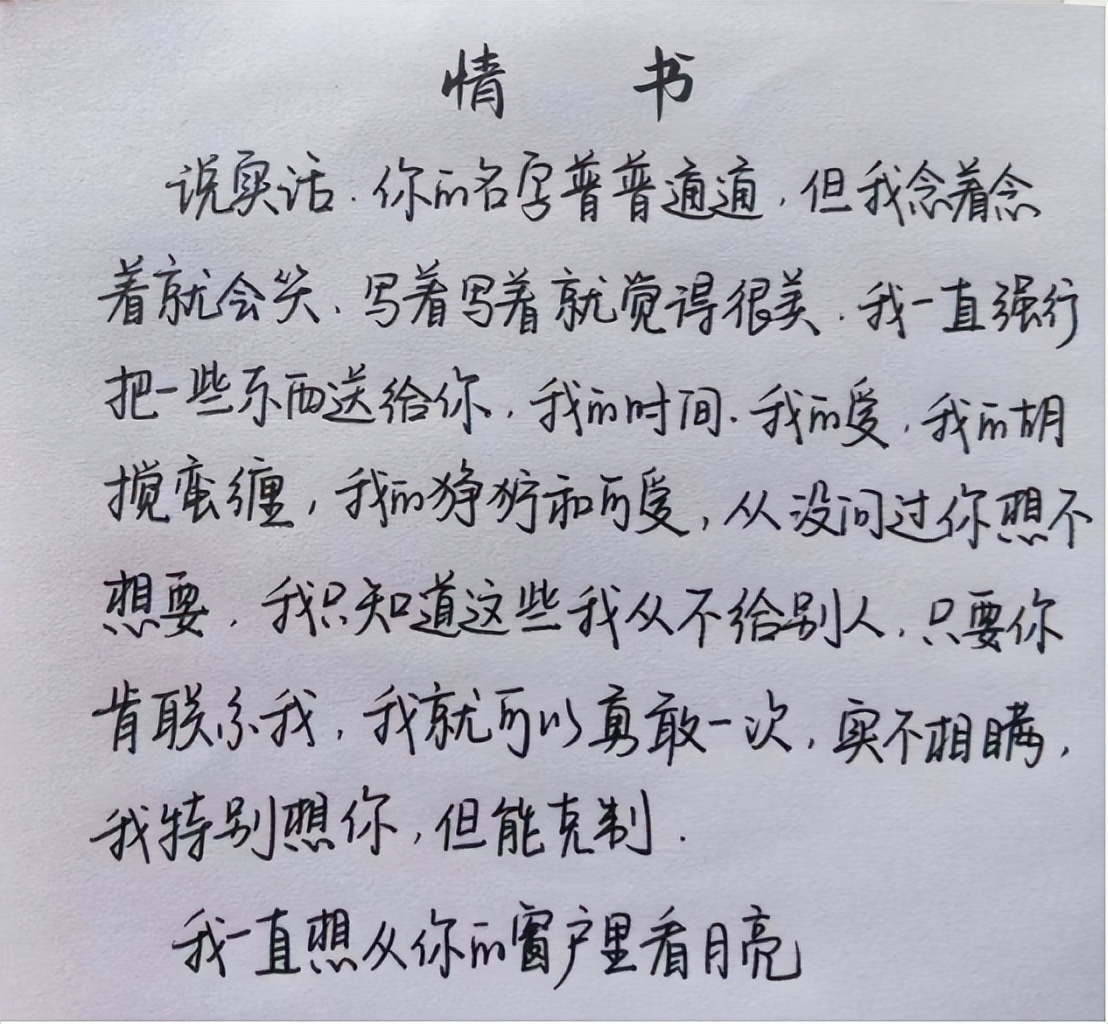 情 书
说实话.你的名字普普通通,但我念着念
着就会笑、写着写着就觉得很美.我一直强行
把一些东西送给你,我的时间.我的爱,我的胡
搅蛮缠,我的狰狞和可爱,从没问过你想不
想要.我只知道这些我从不给别人,只要你
肯联系我,我就可以勇敢一次,实不相瞒,
我特别想你,但能克制.
我一直想从你的窗户里看月亮